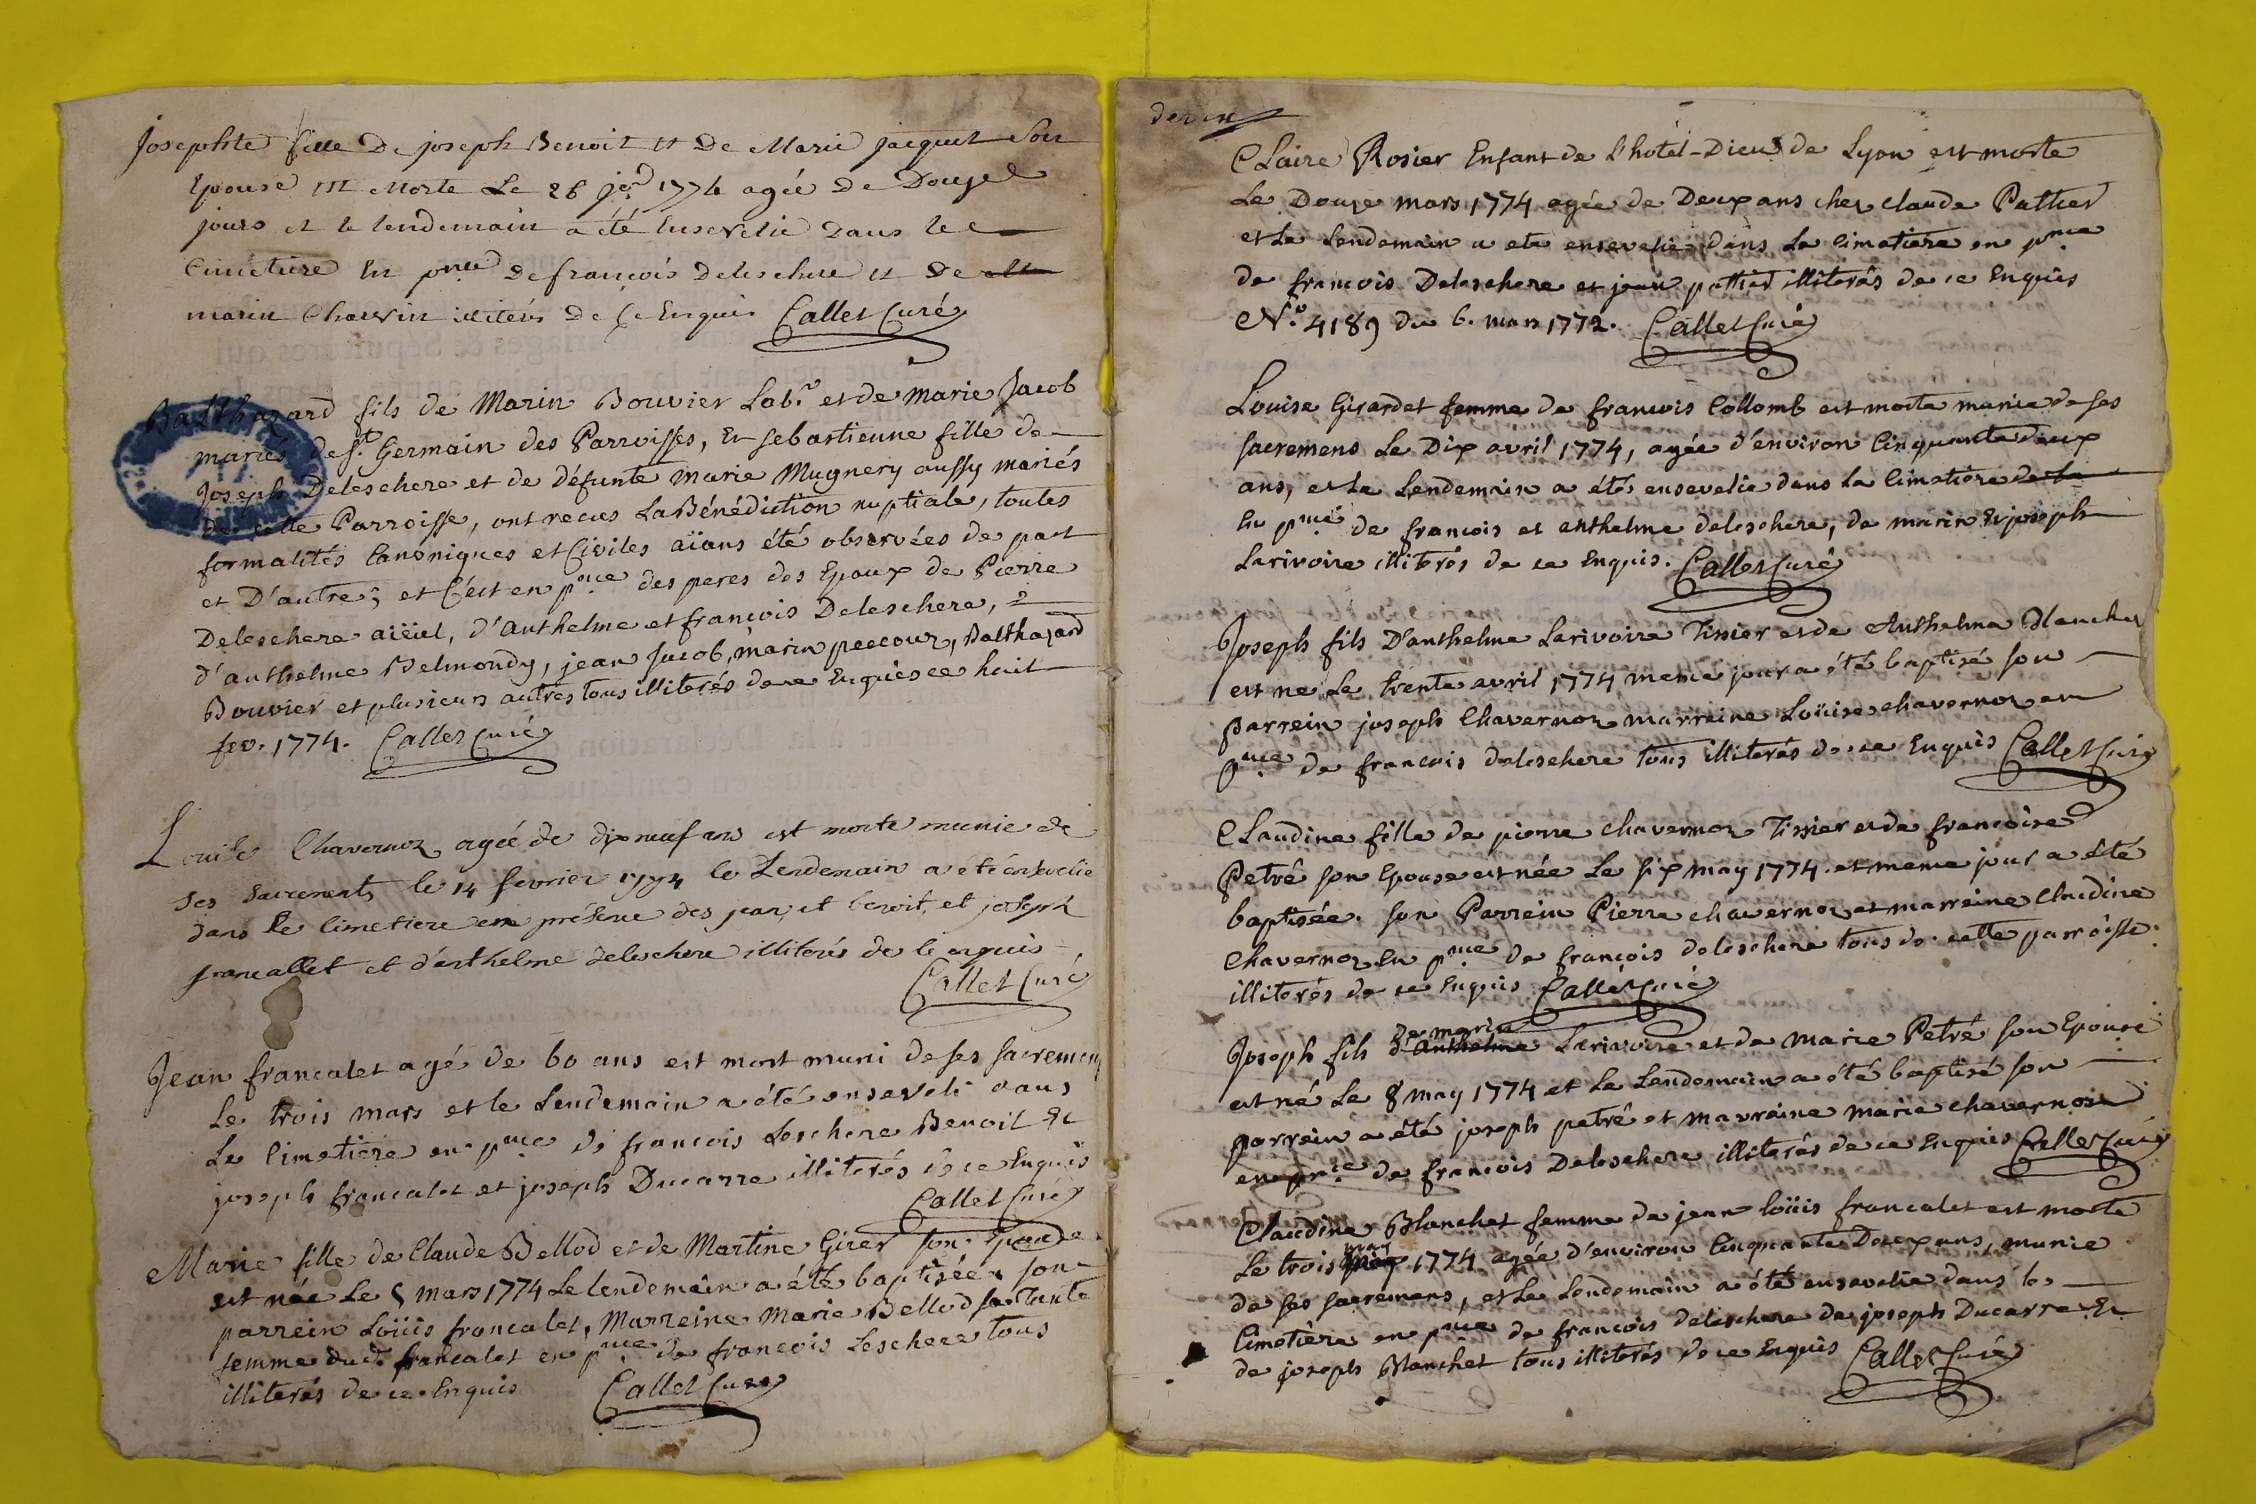 Josephte fille De joseph Benoit et De Marie jacquet Son
Epouse est Morte Le 26 1774 agée De Douze
jours et le lendemain a été Ensevelie Dans le
Cimetiere En pnce de françois deleschere et De
marin Chauvin illiterés De Ce Enquis Callet Curé
Balthazard fils de Marin Bouvier Labr. et de Marie Jacob
mariés de St. Germain des Parroisses, Et Sebastienne fille de
Joseph Deleschere et de Défunte Marie Mugnery aussy mariés
de cette Parroisse, ont recus La Bénédiction nuptiale, toutes
formalités Canoniques et Civiles aïans été observées de part
et D'autre; et C'est en pnce des peres des Epoux de Pierre
Deleschere aiëul, d'Anthelme et françois Deleschere,
d'anthelme Belmondy, jean Jacob, marin peecour, Balthazard
Bouvier et plusieurs autres tous illiterés de ce Enquis ce huit
fev. 1774. Callet Curé
Louise Chavernoz agée de dix neuf ans est morte munie de
ses sacrements le 14 fevrier 1774 le Lendemain a été ensevelie
dans le Cimetiere en présence des jean, et benoit, et joseph
francallet et d'anthelme deleschere illiterés de ce enquis
Callet Curé
Jean francalet agé de 60 ans est mort muni de ses sacremens
Le trois mars et le Lendemain a été enseveli dans
Le Cimetière en pnce de francois Leschere Benoit Et
joseph francalet et joseph Ducarre illiterés de ce Enquis
Callet Curé
Marie fille de Claude Bellod et de Martine Girer son Epouse
est née Le 5 mars 1774 Le lendemain a été baptisée son
parrein Loüis francalet, Marreine Marie Bellod sa tante
femme dud. francalet en pnce de francois Leschere tous
illiterés de ce Enquis Callet Curé
Claire Rosier Enfant de L'hotel-Dieu de Lyon est morte
Le Douze mars 1774 agée de Deux ans chez Claude Pattier
et Le Lendemain a ete ensevelie dans Le Cimetière en pnce
de francois Deleschere et jean pattier illiterés de ce Enquis
No. 4189 du 6. mars 1772. Callet Curé
Louise Girardet femme de francois Collomb est morte munie de ses
sacremens Le Dix avril 1774, agée d'environ Cinquante deux
ans, et Le Lendemain a étés ensevelie dans La Cimetière de la
En pnce de francois et anthelme deleschere, de marin Et joseph
Larivoire illiterés de ce Enquis. Callet Curé
Joseph fils D'anthelme Larivoire Tissier et de Anthelma Blanchet
est ne Le trente avril 1774 meme jour a été baptisé son
Parrein joseph Chavernoz marreine Loüise chavernoz en
pnce de francois deleschere tous illiterés de ce Enquis Callet Curé
Claudine fille de pierre chavernoz Tissier et de françoise
Petré son Epouse est née Le six may 1774. et meme jour a été
baptisée. son Parrein Pierre chavernoz et marreine Claudine
Chavernoz En pnce de françois deleschere tous de cette parroisse
illiterés de ce Enquis Callet Curé
de marin
Joseph fils d'anthelme Larivoire et de Marie Petré son Epouse
est né Le 8 may 1774 et Le Lendemain a été baptisé son
parrein a été joseph petré et marraine marie chavernoz
en pnce de françois Deleschere illiterés de ce Enquis Callet Curé
Claudine Blanchet femme de jean loüis francalet est morte
may
Le trois 1774 agée d'environ Cinquante Deux ans, munie
de ses sacremens, et Le Lendemain a étés ensevelie dans le
Cimetière en pnce de françois deleschere de joseph Ducarre Et
de joseph Blanchet tous illiterés de ce Enquis Callet Curé